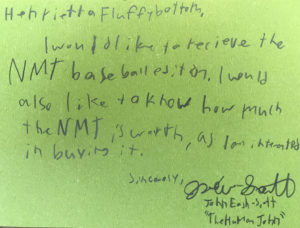 Henrietta Fluffybottom,
I would like to recieve the
NMT baseball edition. I would
also like to know how much
the NMT is worth, as I am interested
in buying it.
Sincerely,
John
"The Human John"